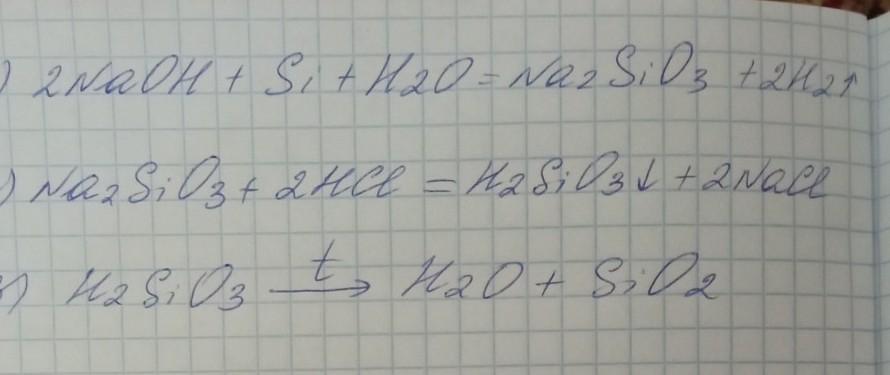 ) 2NaOH + Si + H2O = Na2SiO3 + 2H2↑
) Na2SiO3 + 2HCl = H2SiO3↓ + 2NaCl
3) H2SiO3 —t→ H2O + SiO2